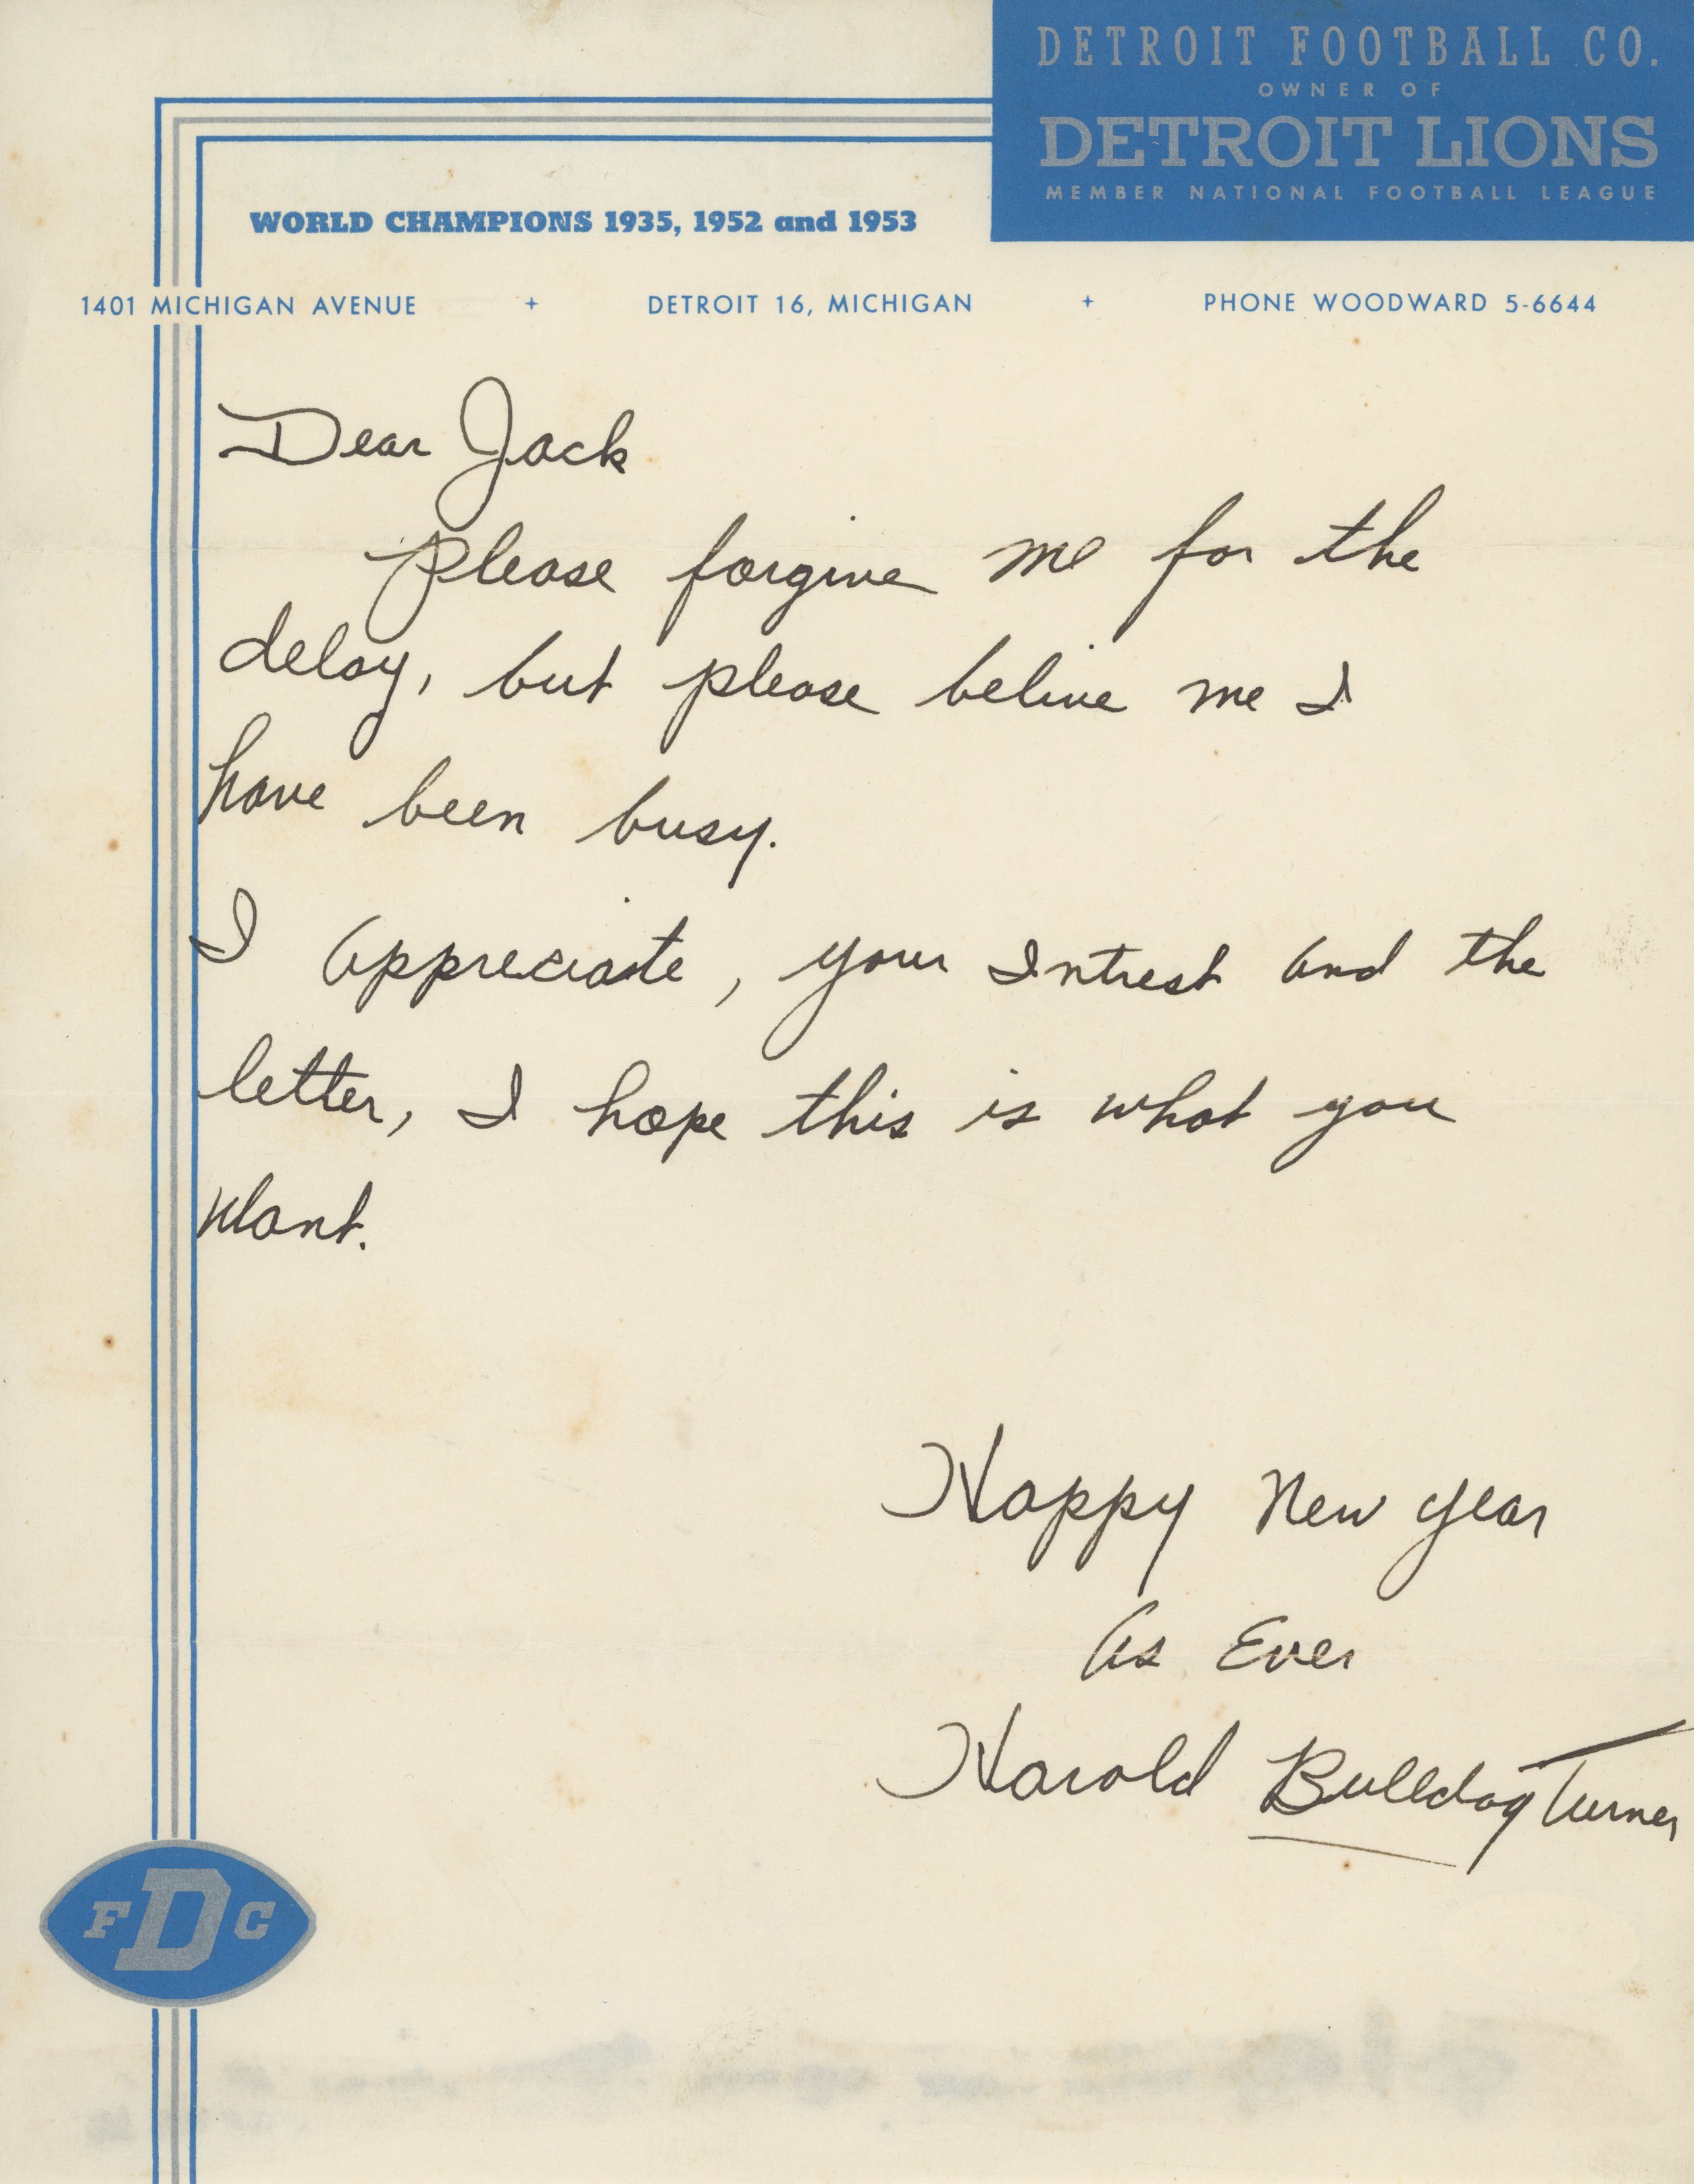 DETROIT FOOTBALL CO.
OWNER OF
DETROIT LIONS
MEMBER NATIONAL FOOTBALL LEAGUE
WORLD CHAMPIONS 1935, 1952 and 1953
1401 MICHIGAN AVENUE + DETROIT 16, MICHIGAN + PHONE WOODWARD 5-6644
Dear Jack
please forgive me for the
delay, but please belive me I
have been busy.
I appreciate, your Intrest and the
letter, I hope this is what you
Want.
Happy New year
As Ever
Harold Bulldog Turner
F D C